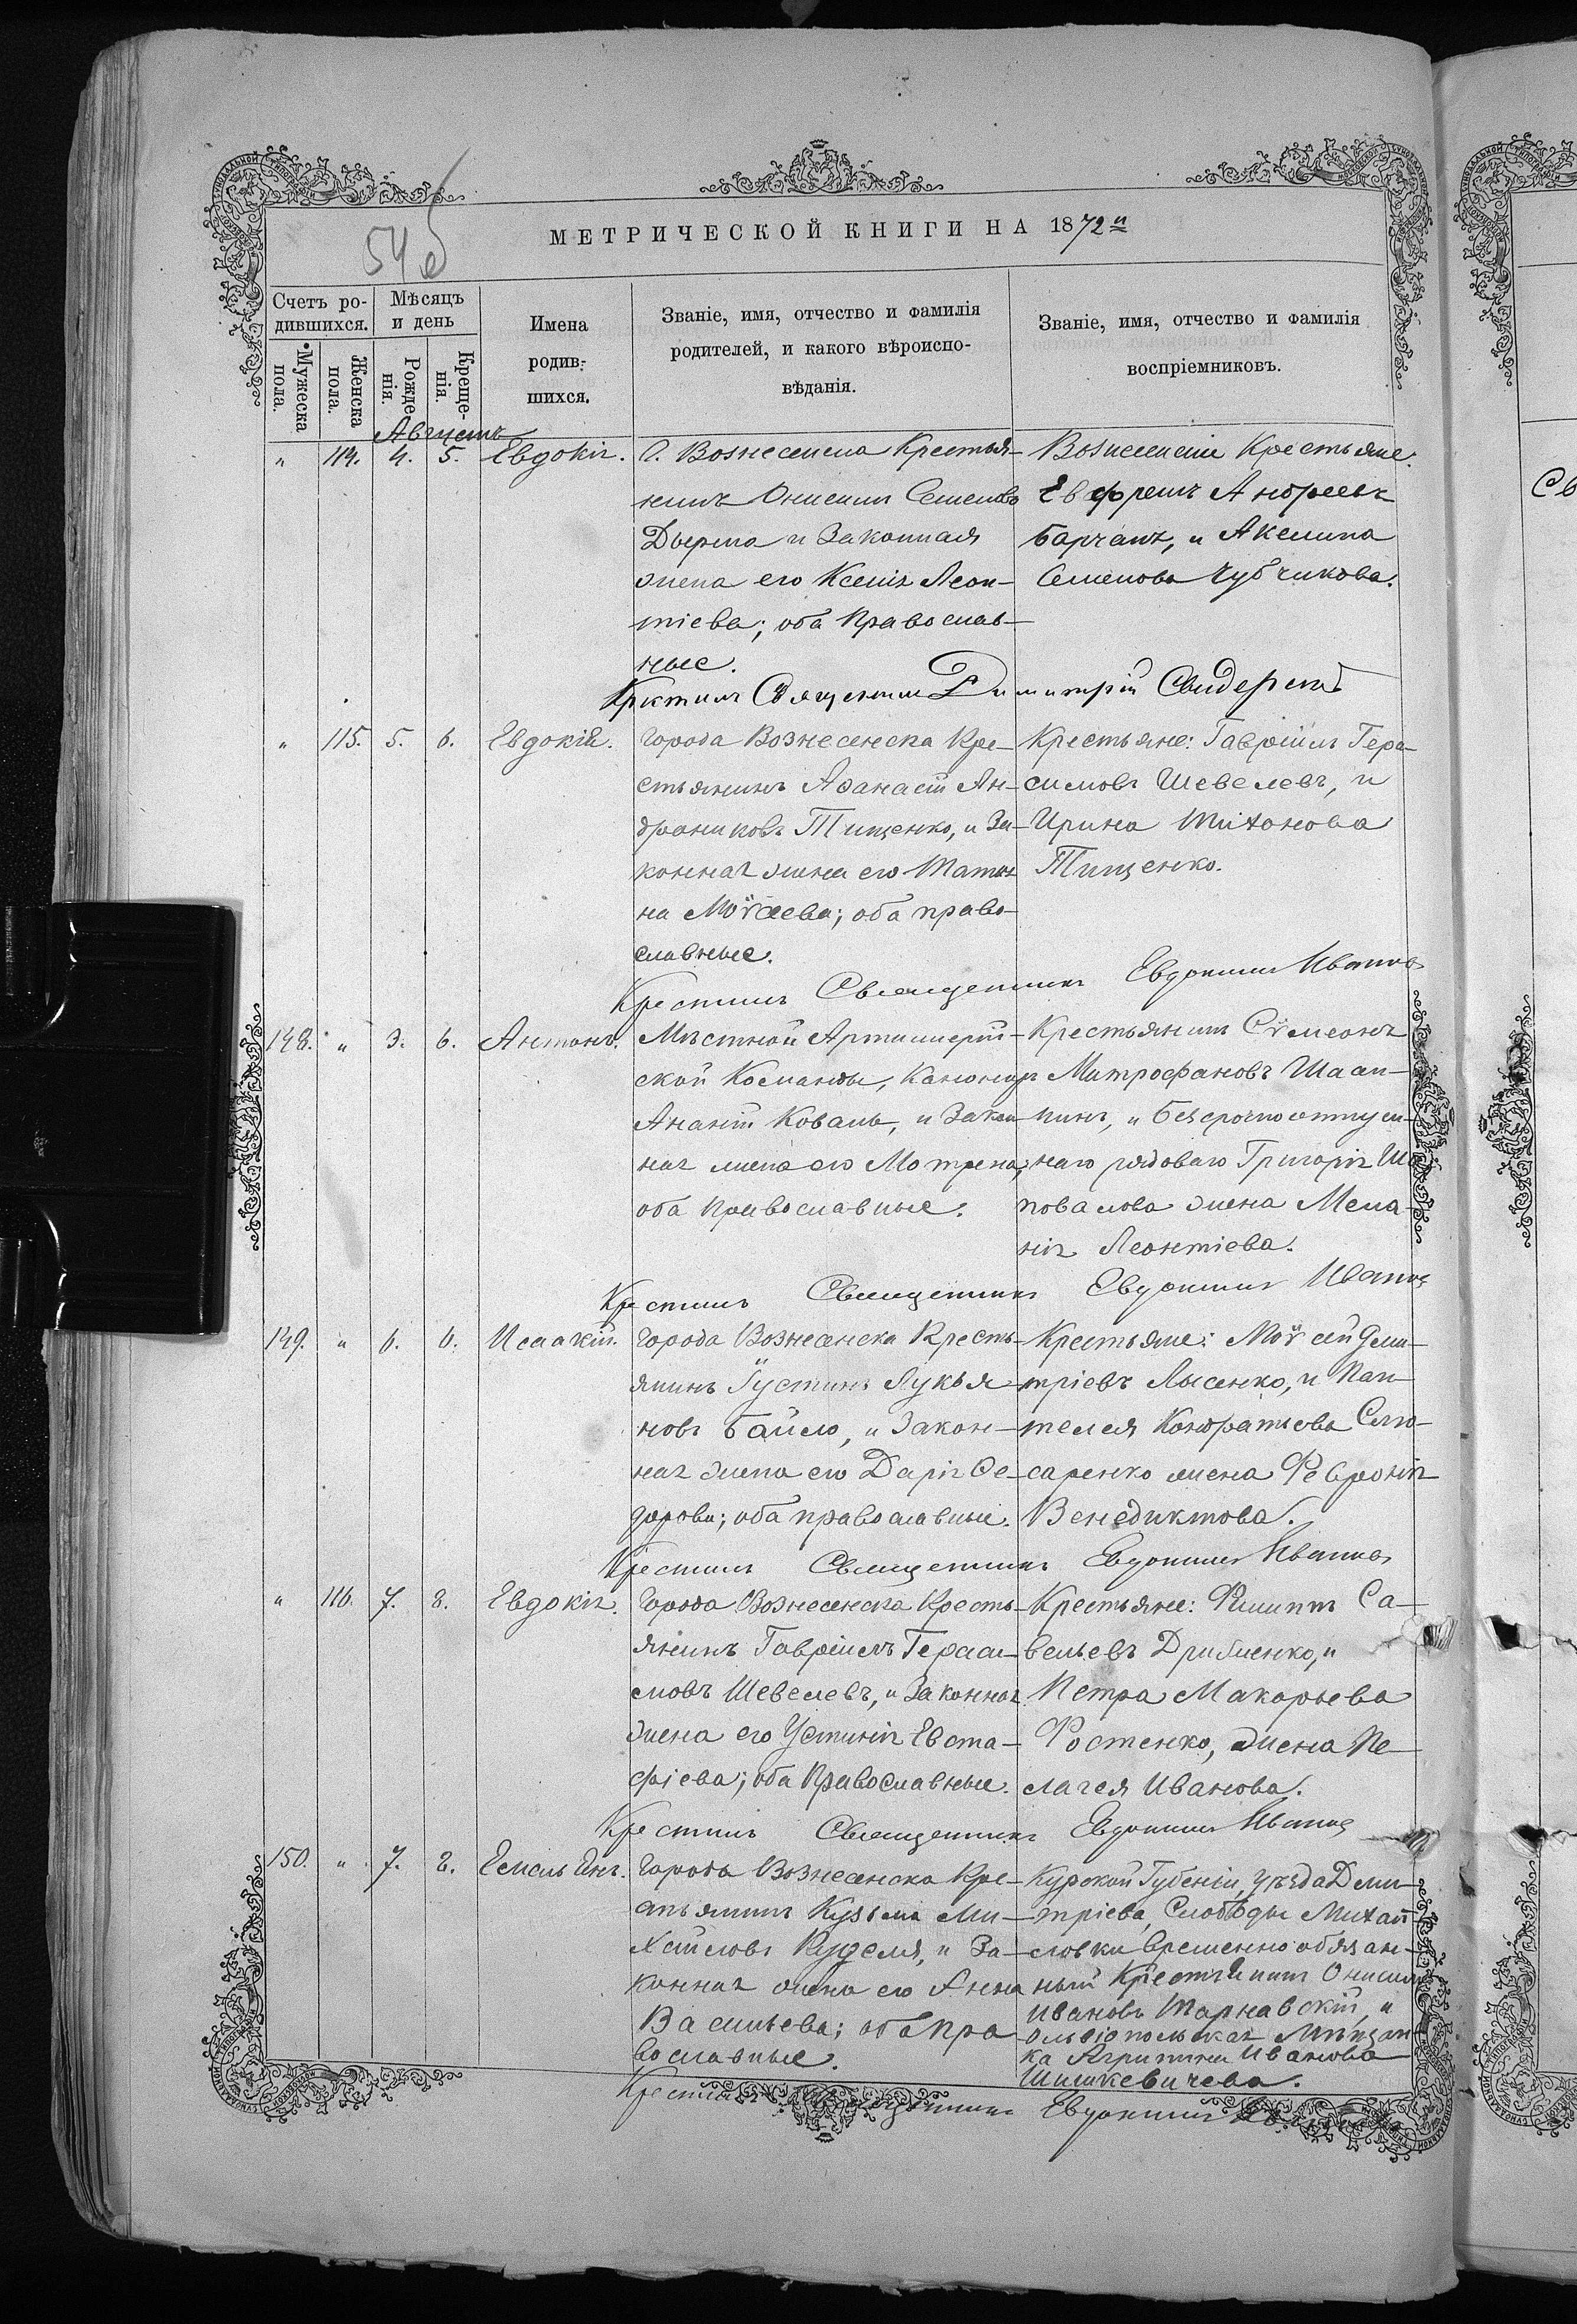 54 об
МЕТРИЧЕСКОЙ КНИГИ НА 1872й
Счетъ ро-
дившихся.
Мѣсяцъ
и день
Мужеска
пола.
Женска
пола.
Рожде
нія.
Креще-
нія.
Имена
родив-
шихся.
Званіе, имя, отчество и фамилія
родителей, и какого вѣроиспо-
вѣданія.
Званіе, имя, отчество и фамилія
воспріемниковъ.
Августъ
" 114. 4. 5. Евдокія.
Г. Вознесенска Крестья-
нинъ Онисимъ Семеновъ
Дырма и Законная
жена его Ксенія Леон-
тіева; оба Православ-
ные.
Вознесенскіе Крестьяне:
Евфремъ Андреевъ
Барчанъ, и Акелина
Семенова Чубчикова.
Крестилъ Священникъ Димитрій
" 115. 5. 6. Евдокія.
Города Вознесенска Кре-
стьянинъ Аѳанасій Ан-
дрониковъ Тищенко, и За-
конная жена его Татья
на Моѵсеева; оба право-
славные.
Крестьяне: Гавріилъ Гера-
симовъ Шевелевъ, и
Ирина Тихонова
Тищенко.
Крестилъ Священникъ Евдокимъ Ивановъ
148. " 3. 6. Антонъ.
Мѣстной Артиллерій-
ской Команды, Канониръ
Ананій Коваль, и Закон-
ная жена его Мотрена;
оба Православные.
Крестьянинъ Сѵмеонъ
Митрофановъ
и безсрочноотпуск-
наго рядоваго Григорія Ша
повалова жена Мела-
нія Леонтіева.
Крестилъ Священникъ Евдокимъ Ивановъ
149. " 6. 6. Исаакій.
Города Вознесенска Кресть-
янинъ Іустинъ Лукья-
новъ Байло, и Закон-
ная жена его Дарія Ѳе-
дорова; оба православные.
Крестьяне: Моѵсей Дми-
тріевъ Лысенко, и Пан-
телея Кондратьева Слю-
саренко жена Февронія
Венедиктова.
Крестилъ Священникъ Евдокимъ Ивановъ
" 116. 7. 8. Евдокія.
Города Вознесенска Кресть-
янинъ Гавріилъ Гераси-
мовъ Шевелевъ, и Законная
жена его Устинія Евста-
фіева; оба Православные.
Крестьяне: Филиппъ Са-
вельевъ и
Петра Макарьева
Фостенко, жена Пе-
лагея Иванова.
Крестилъ Священникъ Евдокимъ Ивановъ
150. " 7. 8. Емельянъ.
Города Вознесенска Кре-
стьянинъ Кузьма Ми-
хайловъ Куделя, и За-
конная жена его Анна
Васильева; оба Пра-
вославные.
Курской Губеніи, уѣзда Дми-
тріева, Слободы Михай-
ловки временно обязан-
ный Крестьянинъ Онисимъ
Ивановъ Тарнавскій, и
Ольвіопольская Мѣщан-
ка Агрипина Иванова
Шишкевичева.
Крестилъ Священникъ Евдокимъ Ивановъ
Св